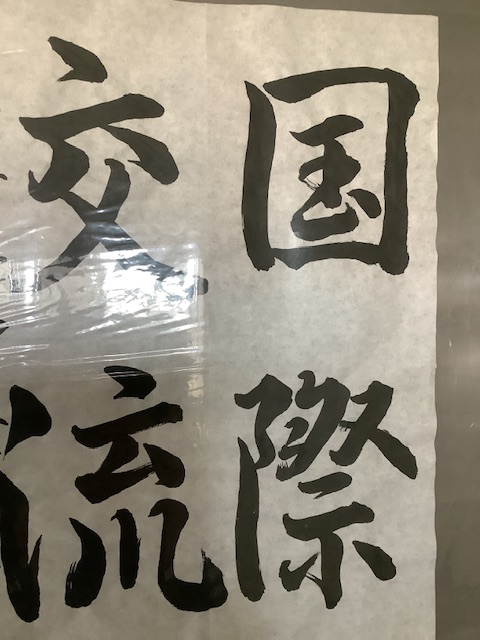 国際
交流